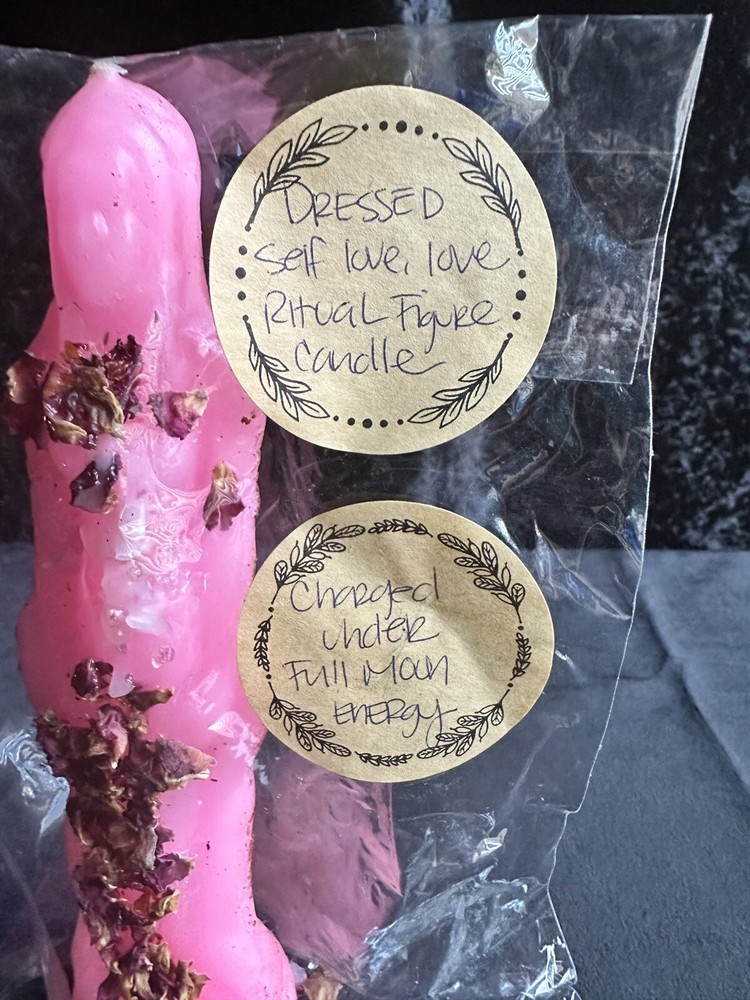 DRESSED
self love, love
RITUAL Figure
Candle
Charged
under
Full Moon
ENERGY